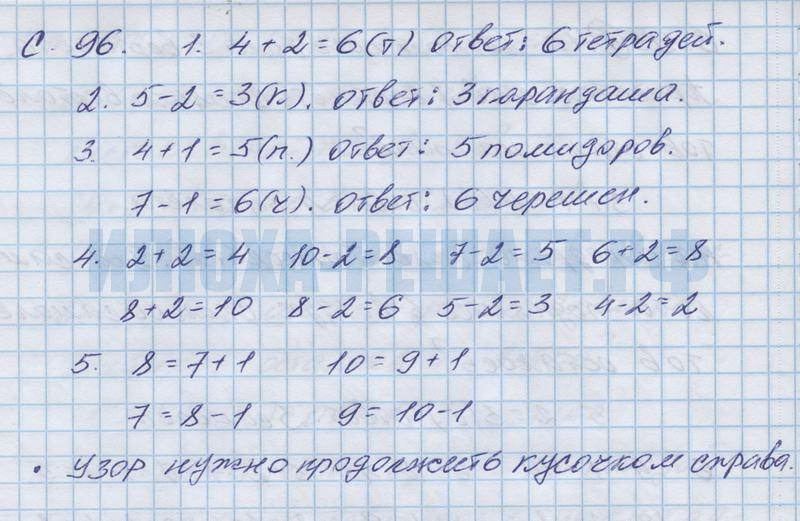 С. 96. 1. 4+2=6(т) ответ: 6 тетрадей.
2. 5-2=3(к). ответ: 3 карандаша.
3. 4+1=5(п.) ответ: 5 помидоров.
7-1=6(ч). ответ: 6 черешен.
ИЛЮХА-РЕШАЕТ.РФ
4. 2+2=4 10-2=8 7-2=5 6+2=8
8+2=10 8-2=6 5-2=3 4-2=2
5. 8=7+1 10=9+1
7=8-1 9=10-1
• узор нужно продолжить кусочком справа.